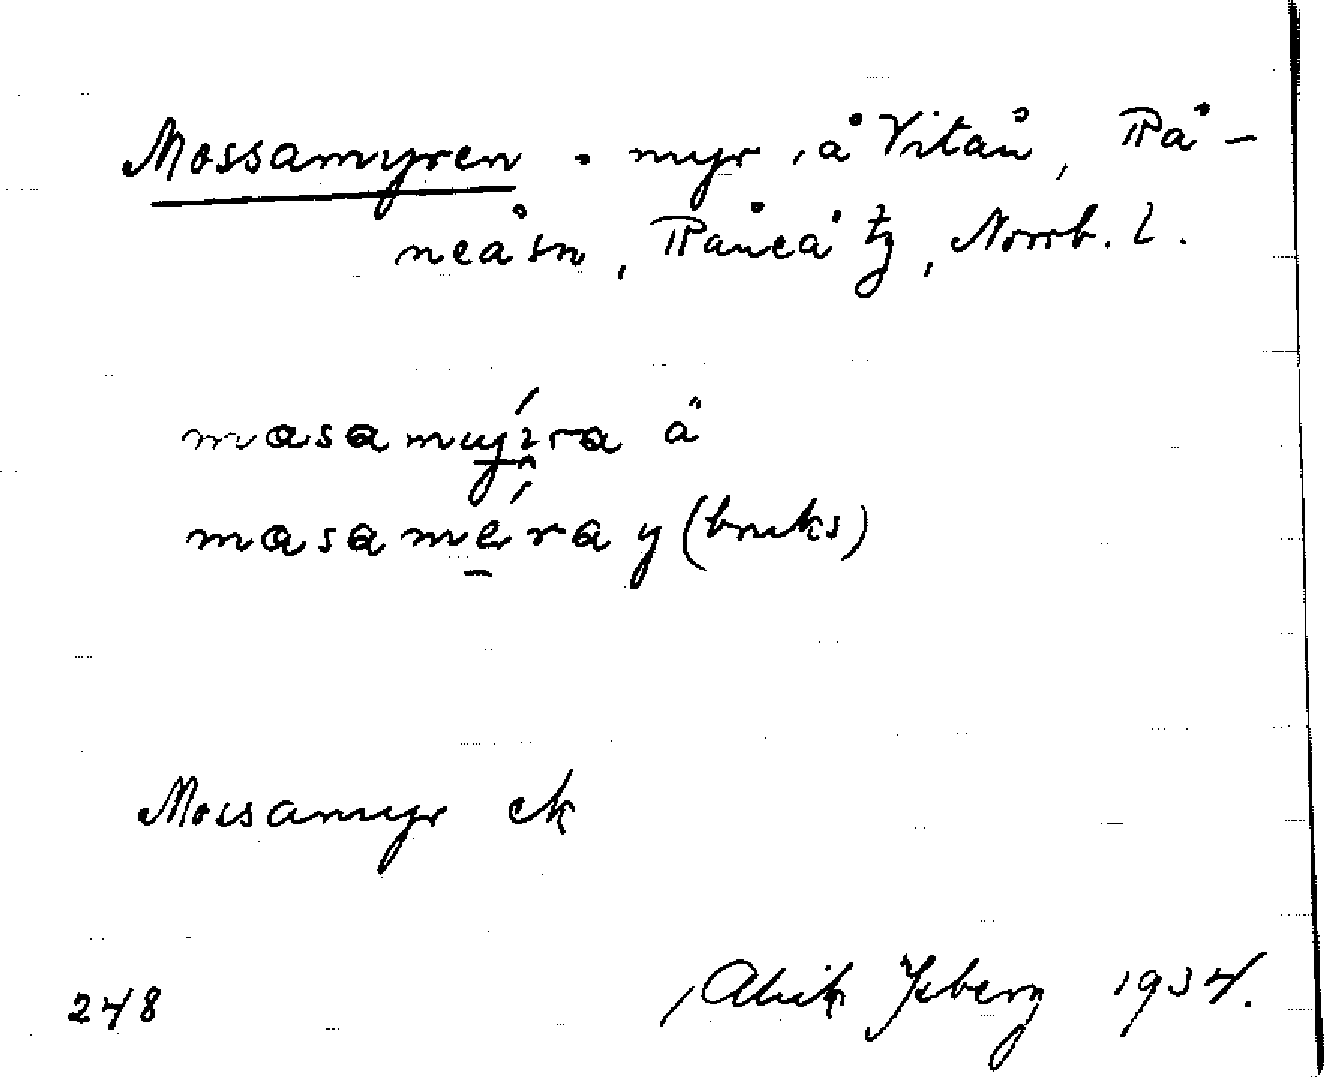 Mossamyren . myr, å Vitån, Rå-
neå sn, Råneå tg, Norrb. l.
masamyra å
masamera y (bruks)
Mossamyr ek
248
Alrik Isberg 1934.